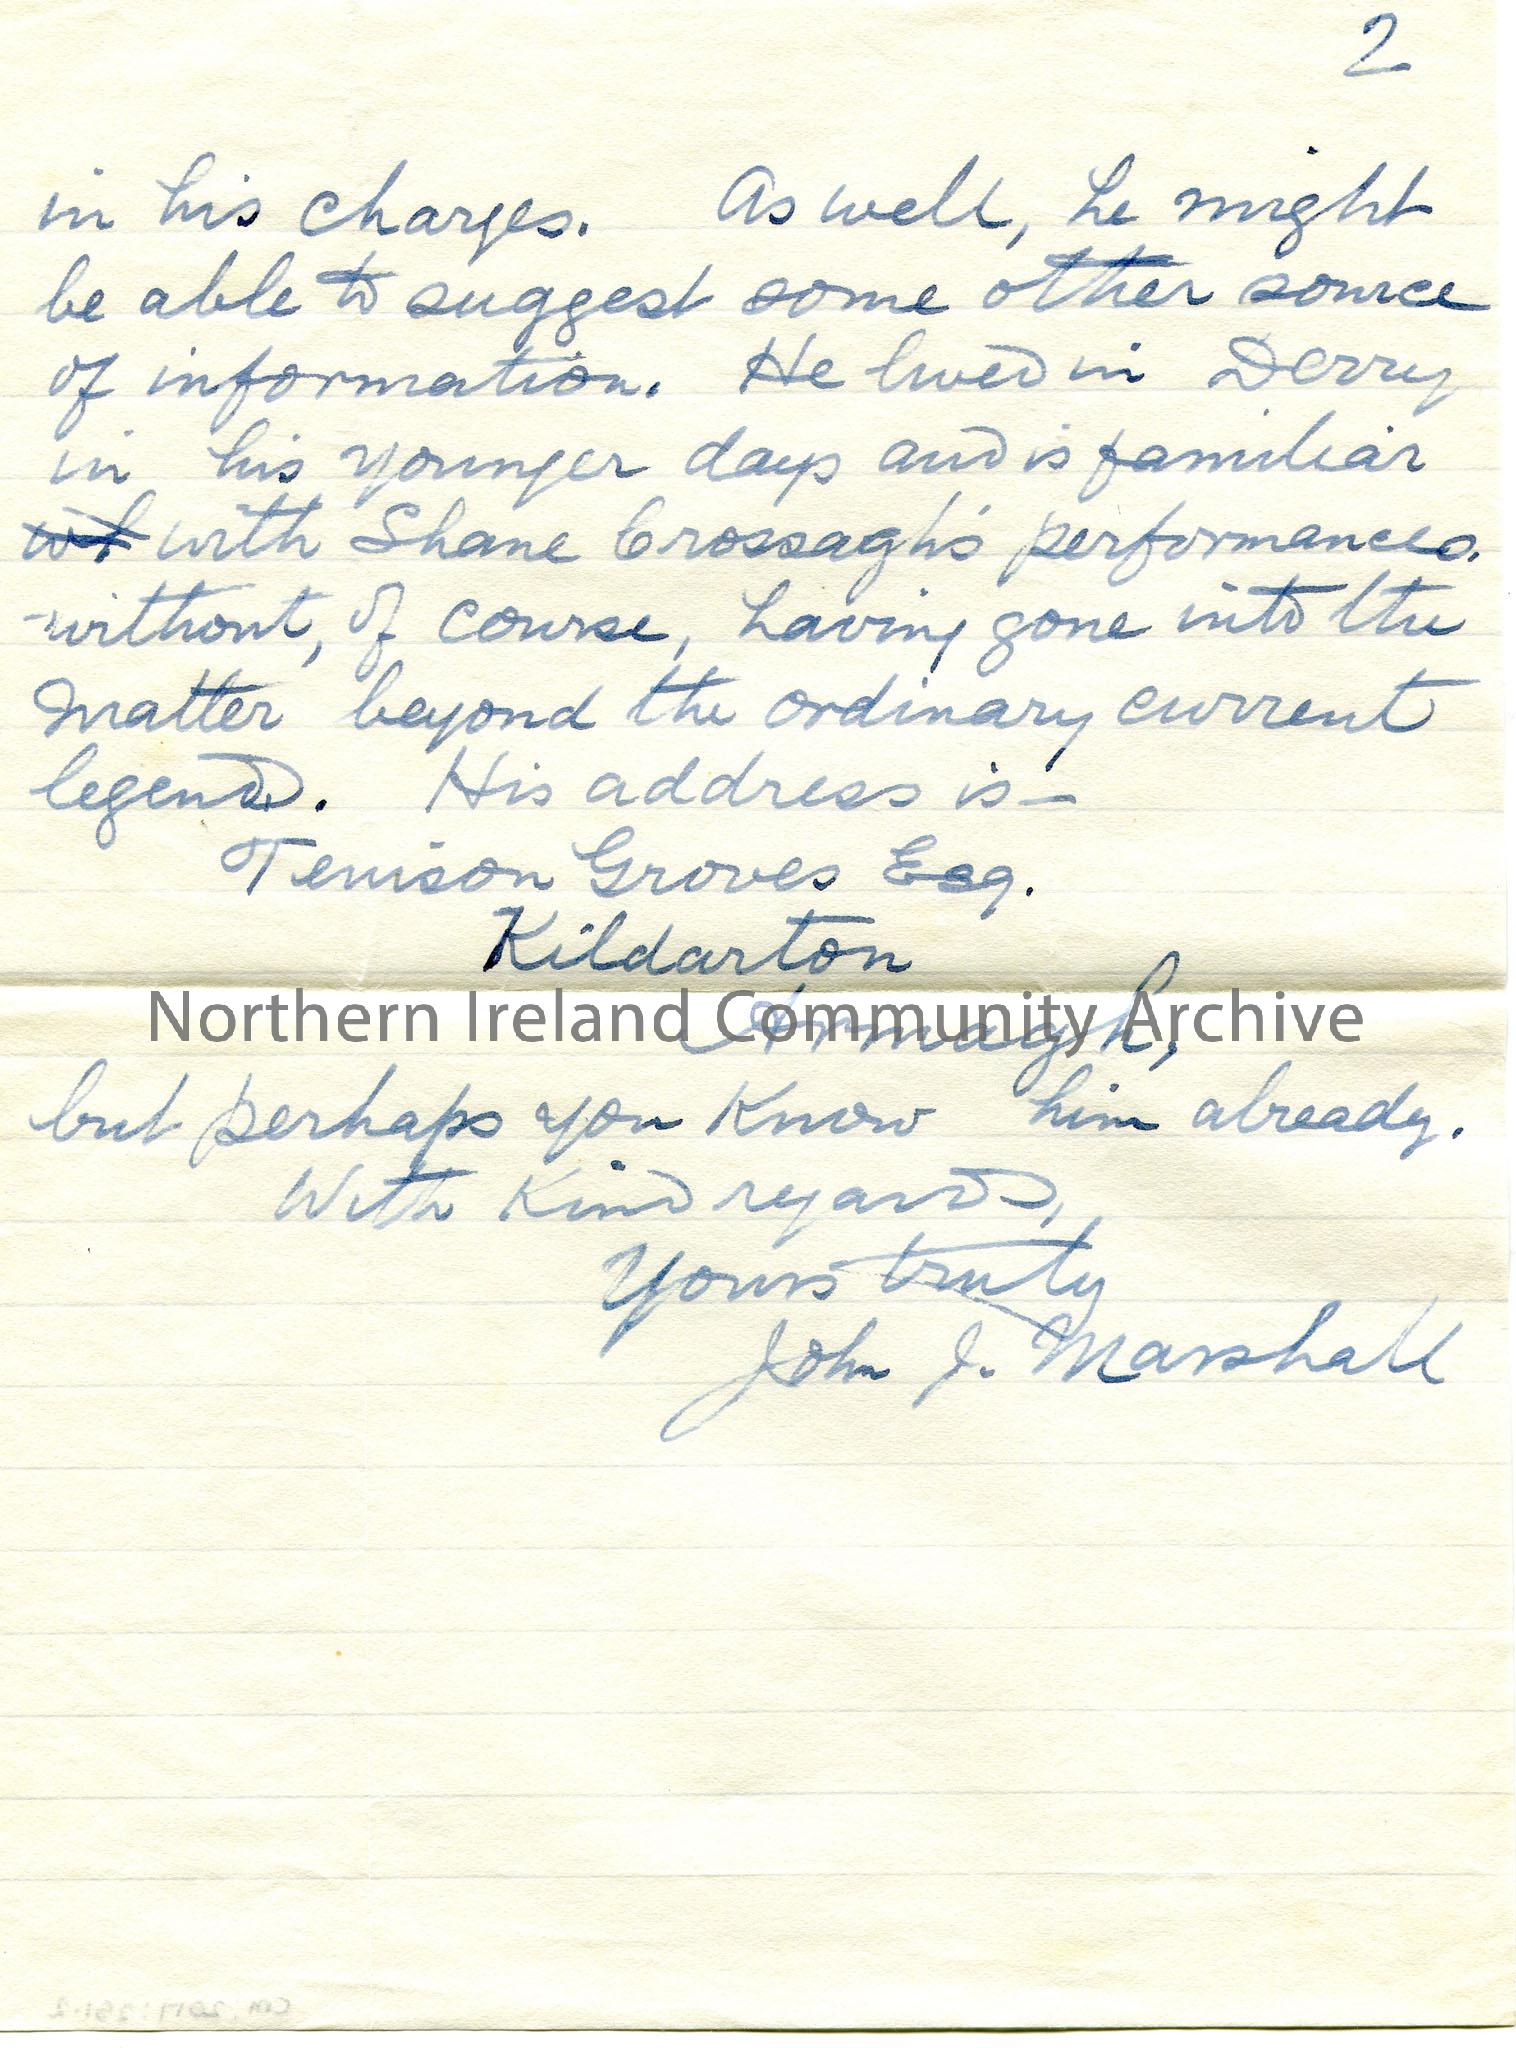 2
in his charges. As well, he might
be able to suggest some other source
of information. He lived in Derry
in his younger days and is familiar
wt with Shane Crossagh's performances.
without, of course, having gone into the
matter beyond the ordinary current
legends. His address is—
Tenison Groves Esq.
Kildarton
Armagh,
Northern Ireland Community Archive
but perhaps you know him already.
With Kind regards,
Yours truly
John J. Marshall
CM.2017:291.2